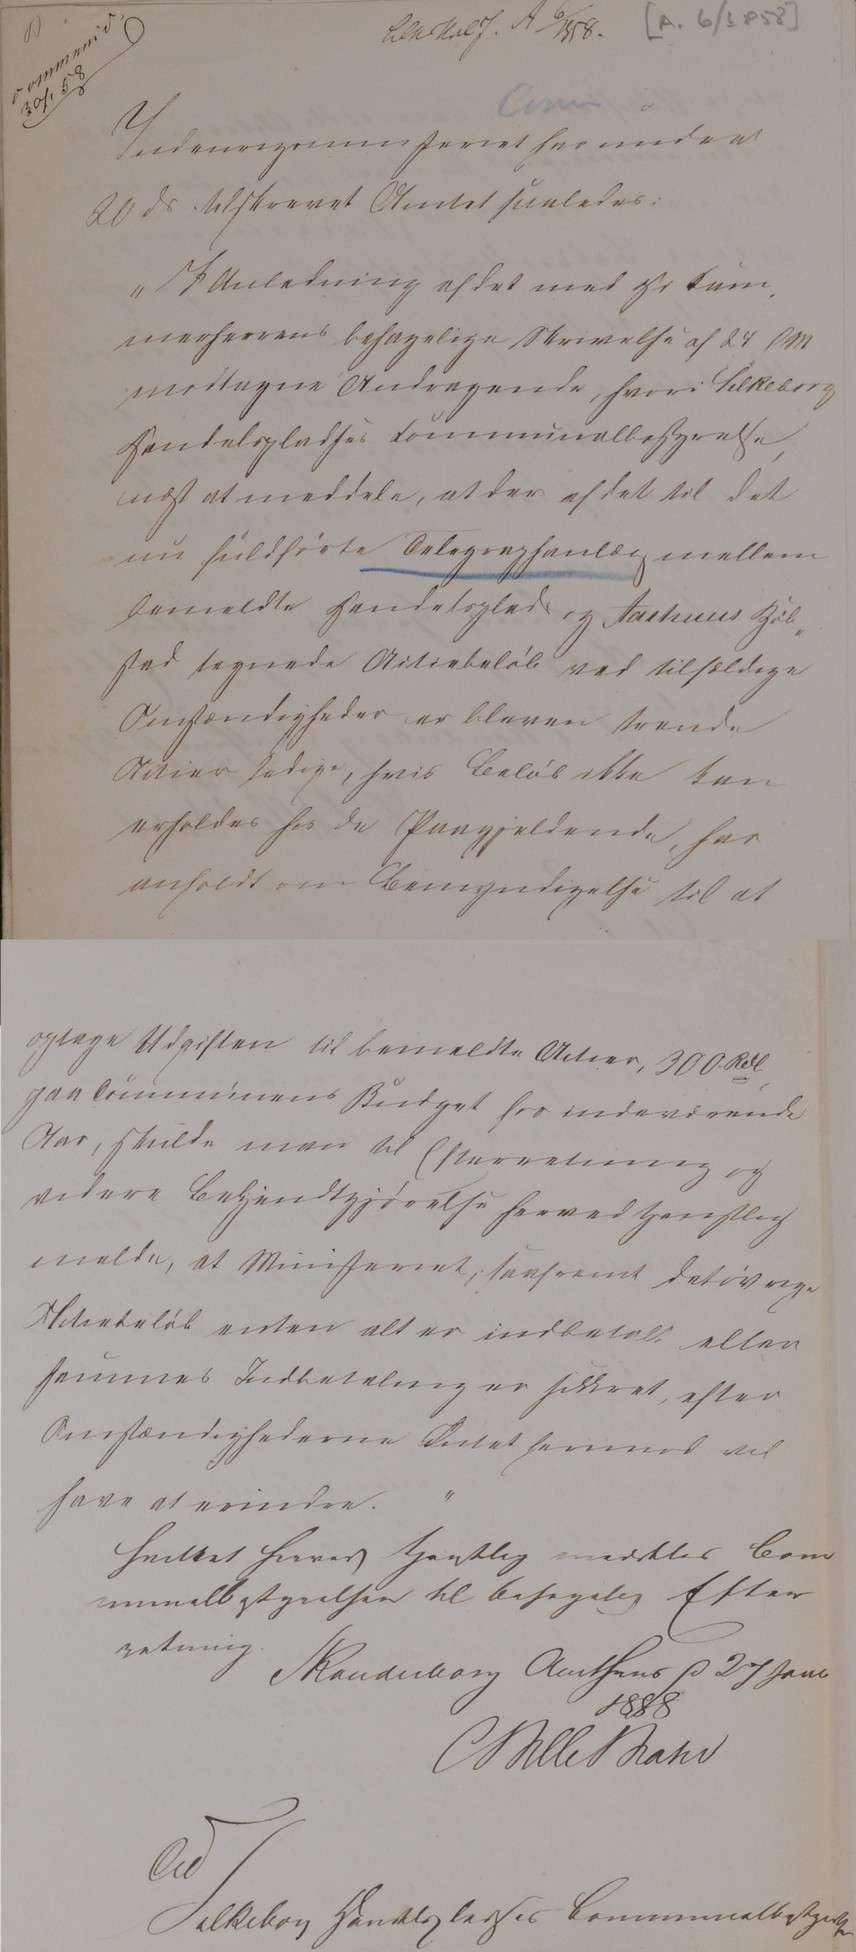 communic.
30/1 58
A 6/1858.
[A. 6/1858]
Indenrigsministeriet har under
20 ds. tilskrevet Amtet saaledes:
„I Anledning af det med Hr Kam-
merherrens behagelige Skrivelse af 24 f M
modtagne Andragende, hvori Silkeborg
Handelspladses Communalbestyrelse,
næst at meddele, at der af det til det
nu fuldførte Telegraphanlæg mellem
bemeldte Handelsplads og Aarhuus Kjøb-
stad tegnede Actiebeløb ved tilfældige
Omstændigheder er bleven trende
Actier ledige, hvis Beløb ikke kan
erholdes hos de Paagjeldende, har
anholdt om Bemyndigelse til at
optage Udgiften til bemeldte Actier, 300 Rdl,
paa Communens Budget for indeværende
Aar, skulde man til Efterretning og
videre Bekjendtgjørelse herved tjenstlig
melde, at Ministeriet, saafremt det øvrige
Actiebeløb enten alt er indbetalt eller
sammes Indbetaling er sikkret, efter
Omstændighederne Intet herimod vil
have at erindre."
Hvilket herved tjenstlig meddeles Com
munalbestyrelsen til behagelig Efter
retning.
Skanderborg Amthuus d 27 Janr
1858
C Bille Brahe
Til
Silkeborg Handelspladses Communalbestyrelse